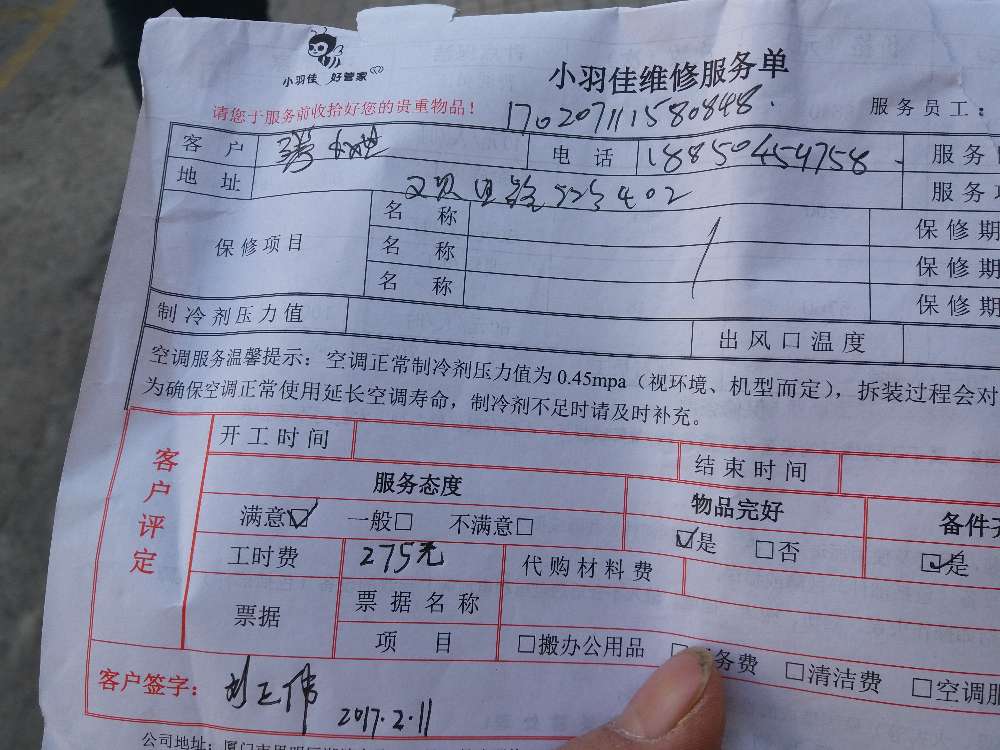 小羽佳 好管家
小羽佳维修服务单
请您于服务前收拾好您的贵重物品！
17020711580848.
服务员工：
客户
电话 18850454758
服务
地址 402
服务
保修项目
名称
保修期
名称
保修期
名称
保修期
制冷剂压力值
出风口温度
空调服务温馨提示：空调正常制冷剂压力值为0.45mpa（视环境、机型而定），拆装过程会对
为确保空调正常使用延长空调寿命，制冷剂不足时请及时补充。
客户评定
开工时间
结束时间
服务态度
物品完好
备件
满意☑ 一般□ 不满意□
☑是 □否
☑是
工时费 275元
代购材料费
票据
票据名称
项目
□搬办公用品 务费 □清洁费 □空调服
客户签字： 2017.2.11
公司地址：厦门市思明区